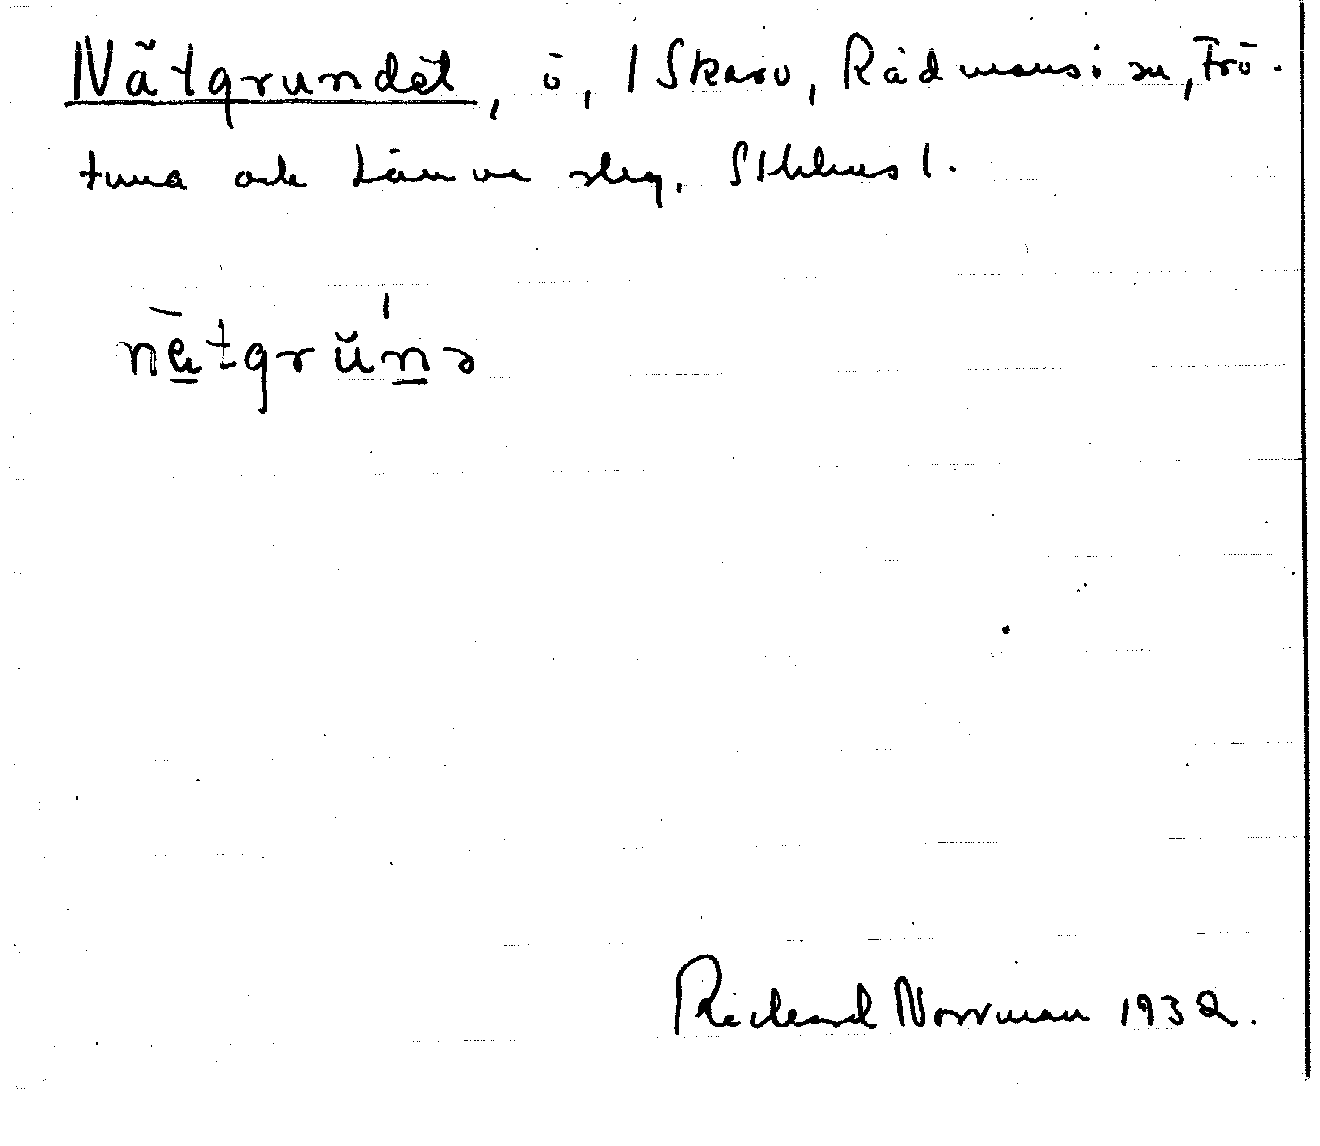 Nätgrundet, ö, I Skaro, Rådmansö sn, Frö-
tuna och Länna slg, Sthlms l.
nätgrŭ́nə
Richard Norrman 1932.